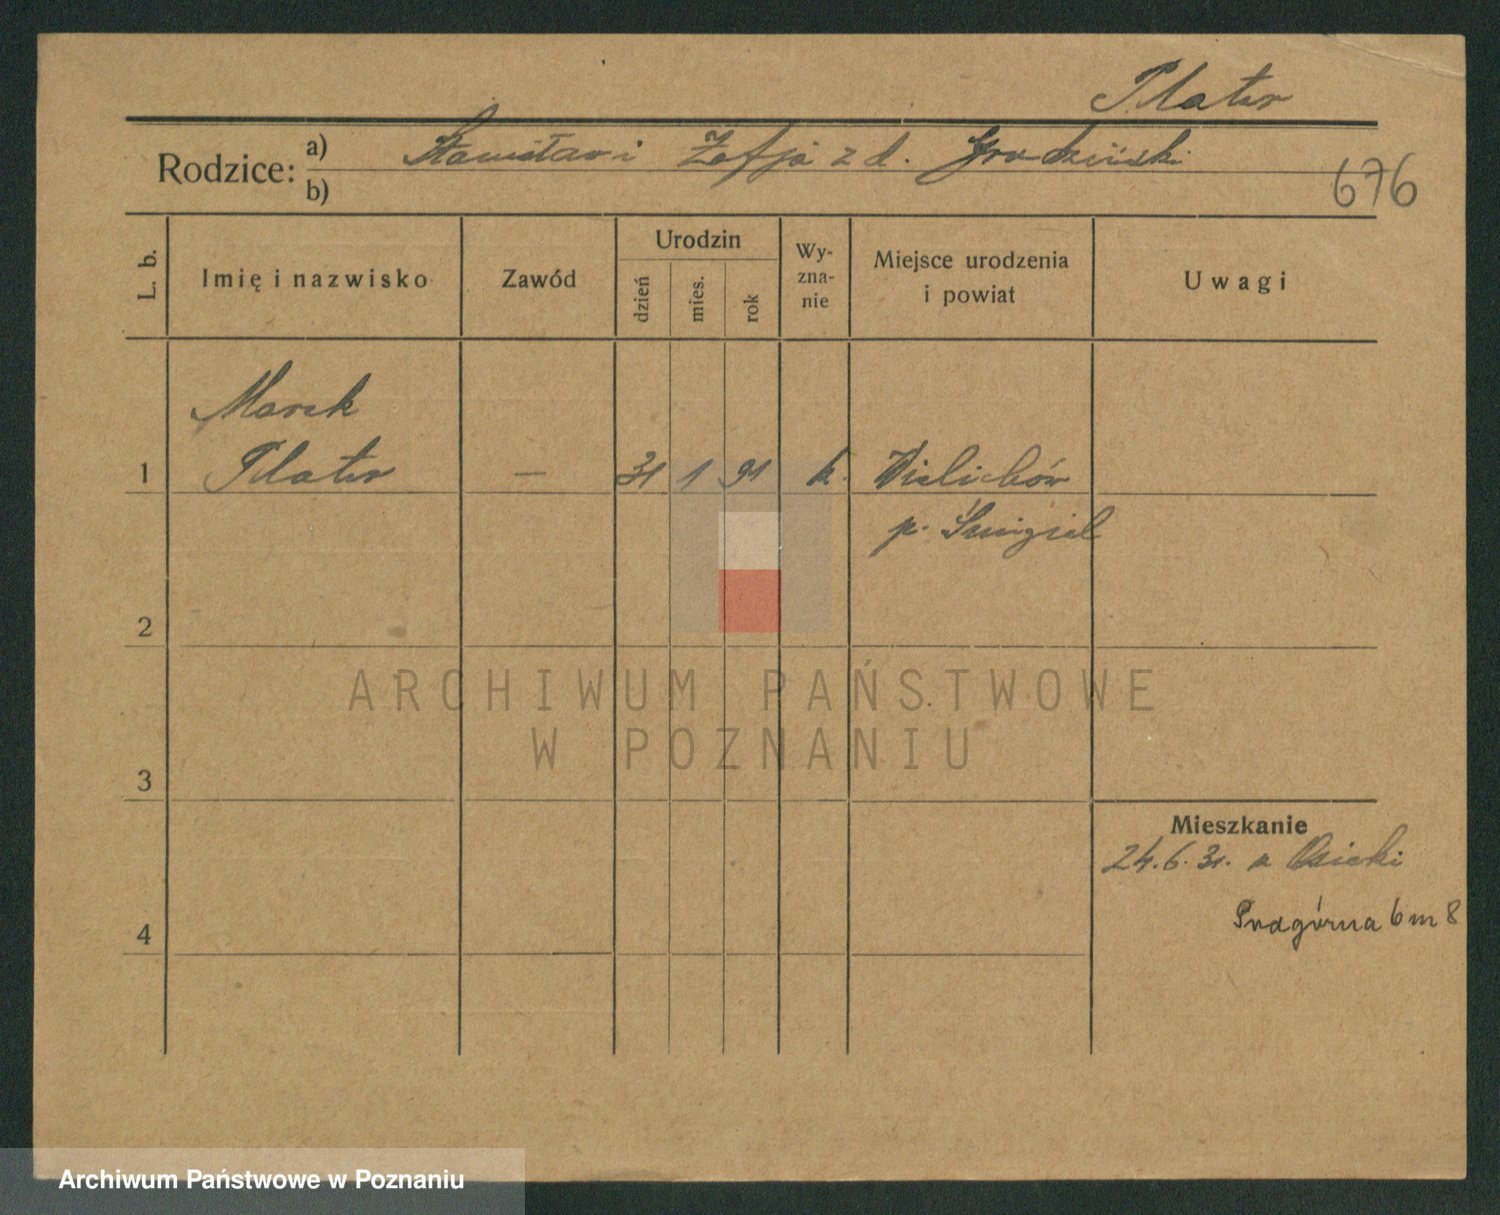 Plater
Rodzice: a) Stanisław i Zofja z d. Grodziński
b)
676
L. b. Imię i nazwisko Zawód Urodzin dzień mies. rok Wyznanie Miejsce urodzenia i powiat Uwagi
Marek
1 Plater — 31 1 91 k. Wielichów
p. Śmigiel
2
ARCHIWUM PAŃSTWOWE
W POZNANIU
3
Mieszkanie
24.6.31. z Osieki
Podgórna 6 m 8
4
Archiwum Państwowe w Poznaniu